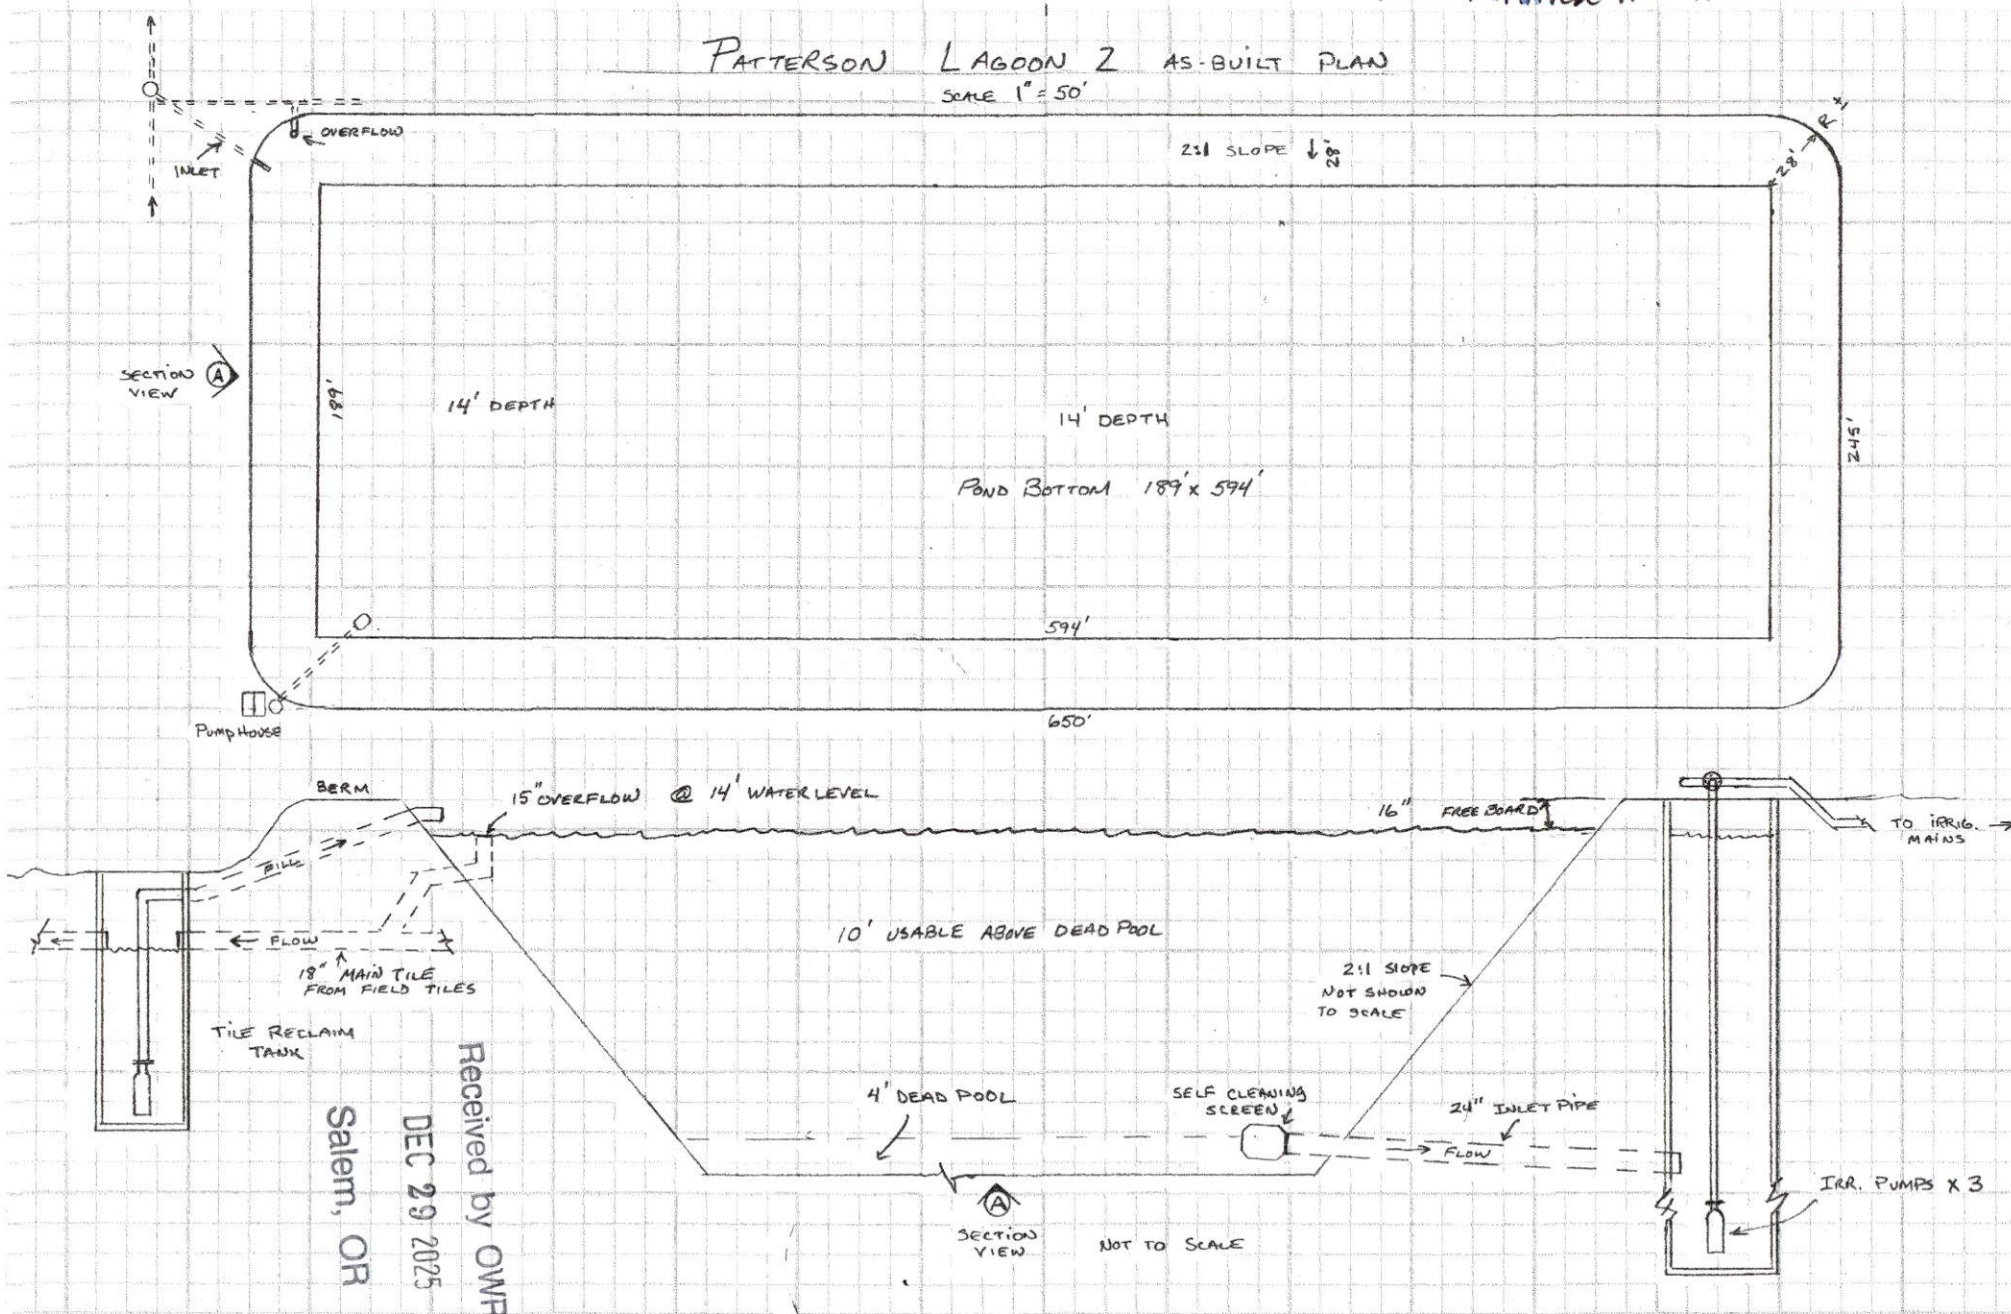 PATTERSON LAGOON 2 AS-BUILT PLAN
SCALE 1" = 50'
OVERFLOW
INLET
2:1 SLOPE
28'
28' R
SECTION
VIEW
A
189'
14' DEPTH
14' DEPTH
POND BOTTOM 189' x 594'
245'
594'
650'
PUMP HOUSE
BERM
15" OVERFLOW @ 14' WATER LEVEL
16" FREE BOARD
TO IRRIG.
MAINS
FILL
FLOW
18" MAIN TILE
FROM FIELD TILES
TILE RECLAIM
TANK
10' USABLE ABOVE DEAD POOL
2:1 SLOPE
NOT SHOWN
TO SCALE
4' DEAD POOL
SELF CLEANING
SCREEN
24" INLET PIPE
FLOW
IRR. PUMPS X 3
A
SECTION
VIEW
NOT TO SCALE
Received by OWR
DEC 29 2025
Salem, OR